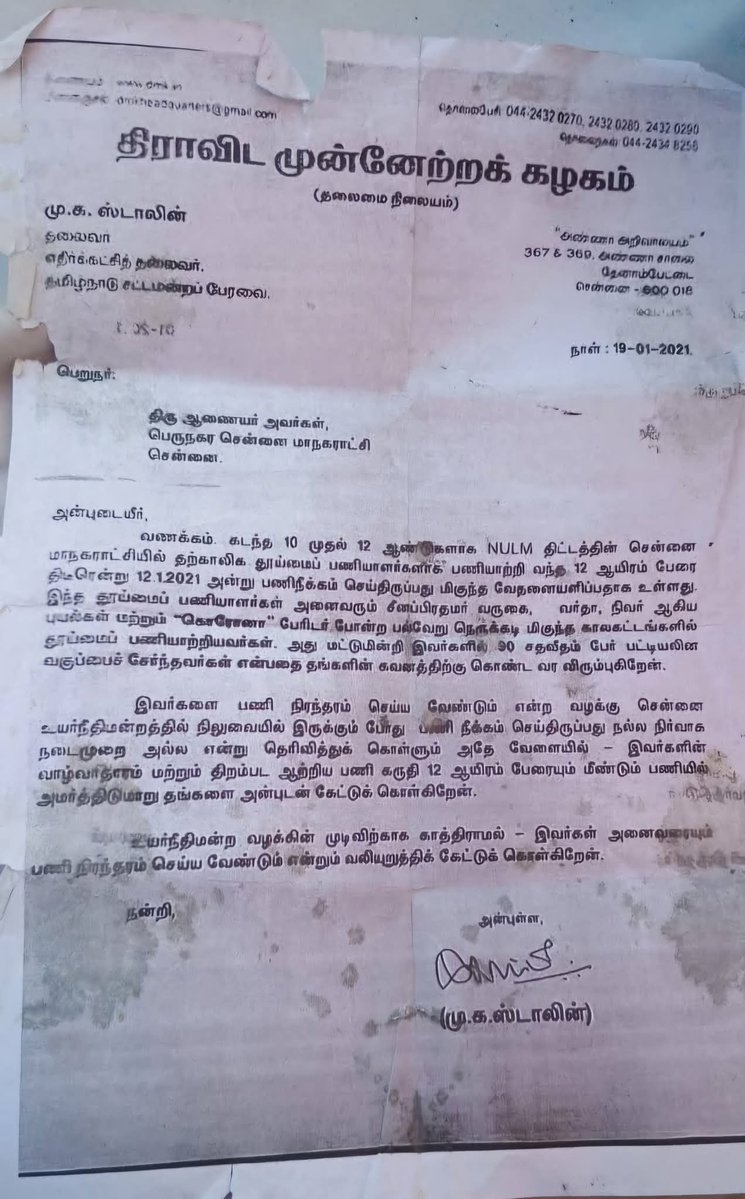 www.dmk.in
dmkheadquarters@gmail.com
தொலைபேசி 044-2432 0270, 2432 0280, 2432 0290
தொலைநகல் 044-2434 8258
திராவிட முன்னேற்றக் கழகம்
(தலைமை நிலையம்)
மு.க. ஸ்டாலின்
தலைவர்
எதிர்க்கட்சித் தலைவர்,
தமிழ்நாடு சட்டமன்றப் பேரவை.
"அண்ணா அறிவாலயம்"
367 & 369, அண்ணா சாலை
தேனாம்பேட்டை
சென்னை - 600 018
நாள் : 19-01-2021.
பெறுநர்:
திரு ஆணையர் அவர்கள்,
பெருநகர சென்னை மாநகராட்சி
சென்னை.
அன்புடையீர்,
வணக்கம். கடந்த 10 முதல் 12 ஆண்டுகளாக NULM திட்டத்தின் சென்னை
மாநகராட்சியில் தற்காலிக தூய்மைப் பணியாளர்களாக பணியாற்றி வந்த 12 ஆயிரம் பேரை
திடீரென்று 12.1.2021 அன்று பணிநீக்கம் செய்திருப்பது மிகுந்த வேதனையளிப்பதாக உள்ளது.
இந்த தூய்மைப் பணியாளர்கள் அனைவரும் சீனப்பிரதமர் வருகை, வர்தா, நிவர் ஆகிய
புயல்கள் மற்றும் "கொரோனா" பேரிடர் போன்ற பல்வேறு நெருக்கடி மிகுந்த காலகட்டங்களில்
தூய்மைப் பணியாற்றியவர்கள். அது மட்டுமின்றி இவர்களில் 90 சதவீதம் பேர் பட்டியலின
வகுப்பைச் சேர்ந்தவர்கள் என்பதை தங்களின் கவனத்திற்கு கொண்ட வர விரும்புகிறேன்.
இவர்களை பணி நிரந்தரம் செய்ய வேண்டும் என்ற வழக்கு சென்னை
உயர்நீதிமன்றத்தில் நிலுவையில் இருக்கும் போது பணி நீக்கம் செய்திருப்பது நல்ல நிர்வாக
நடைமுறை அல்ல என்று தெரிவித்துக் கொள்ளும் அதே வேளையில் – இவர்களின்
வாழ்வாதாரம் மற்றும் திறம்பட ஆற்றிய பணி கருதி 12 ஆயிரம் பேரையும் மீண்டும் பணியில்
அமர்த்திடுமாறு தங்களை அன்புடன் கேட்டுக் கொள்கிறேன்.
உயர்நீதிமன்ற வழக்கின் முடிவிற்காக காத்திராமல் – இவர்கள் அனைவரையும்
பணி நிரந்தரம் செய்ய வேண்டும் என்றும் வலியுறுத்திக் கேட்டுக் கொள்கிறேன்.
நன்றி,
அன்புள்ள,
(மு.க.ஸ்டாலின்)